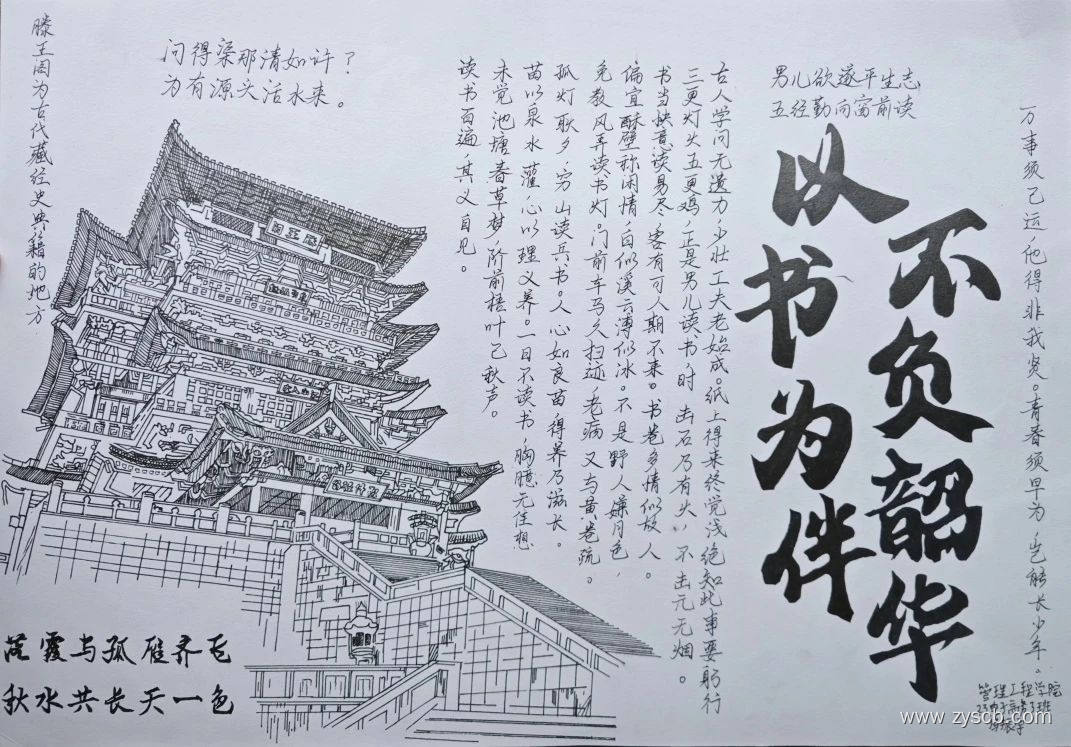 滕王阁为古代藏经史典籍的地方
问得渠那清如许？
为有源头活水来。
男儿欲遂平生志，
五经勤向窗前读
万事须己运，他得非我贤。青春须早为，岂能长少年。
以书为伴
不负韶华
古人学问无遗力，少壮工夫老始成。纸上得来终觉浅，绝知此事要躬行
三更灯火五更鸡，正是男儿读书时，击石乃有火，不击元无烟。
书当快意读易尽，客有可人期不来。书卷多情似故人。
偏宜酥壁称闲情，白似溪云薄似冰。不是野人嫌月色，
免教风弄读书灯。门前车马久扫迹，老病又与黄卷疏。
孤灯耿夕，穷山读兵书。人心如良苗，得养乃滋长。
苗以泉水灌，心以理义养。一日不读书，胸臆无佳想
未觉池塘春草梦，阶前梧叶已秋声。
读书百遍，其义自见。
滕王阁
落霞与孤雁齐飞
秋水共长天一色
管理工程学院
www.zyscb.com